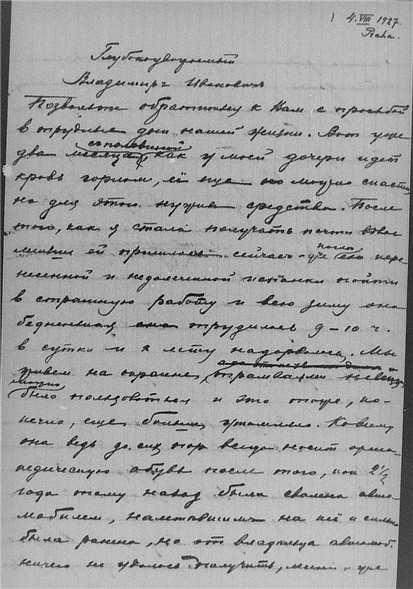 4.VIII 1927.
Praha.
Глубокоуважаемый
Владимир Иванович
Позвольте обратиться к Вам с просьбой
в трудные дни нашей жизни. Вот уже
с половиной
два месяца, как у моей дочери идет
кровь горлом, её еще можно спасти
но для этого нужны средства. После
того, как я стала получать почти вдвое
ей пришлось сейчас после
недолеченной испанки пойти
в страшную работу и всю зиму она
бедненькая трудилась 9-10 ч.
в сутки и к лету надорвалась. Мы
живем на окраине, трамваями
было пользоваться и это тоже, ко-
нечно, еще больше утомляло. Ко всему
она ведь до сих пор всегда носит орто-
педическую обувь после того, как 2½
года тому назад была свалена авто-
мобилем, налетевшим на неё и сильно
была ранена, но от владельца автомоб.
ничего не удалось получить, уже